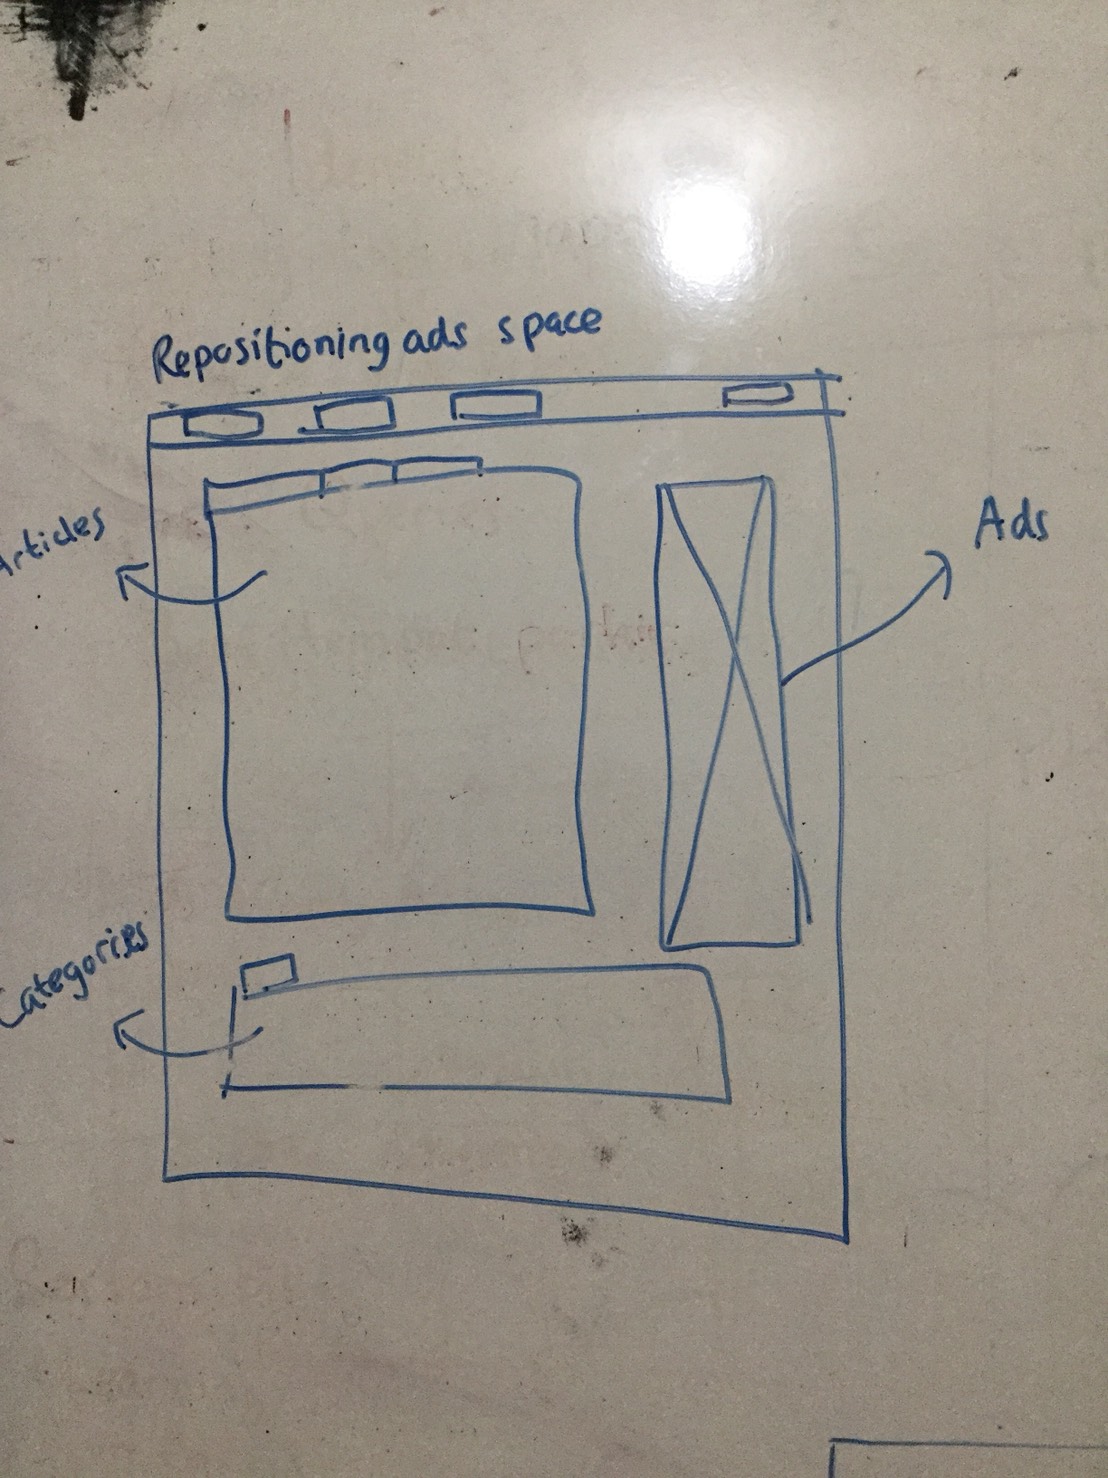 Repositioning ads space
Articles
Ads
Categories